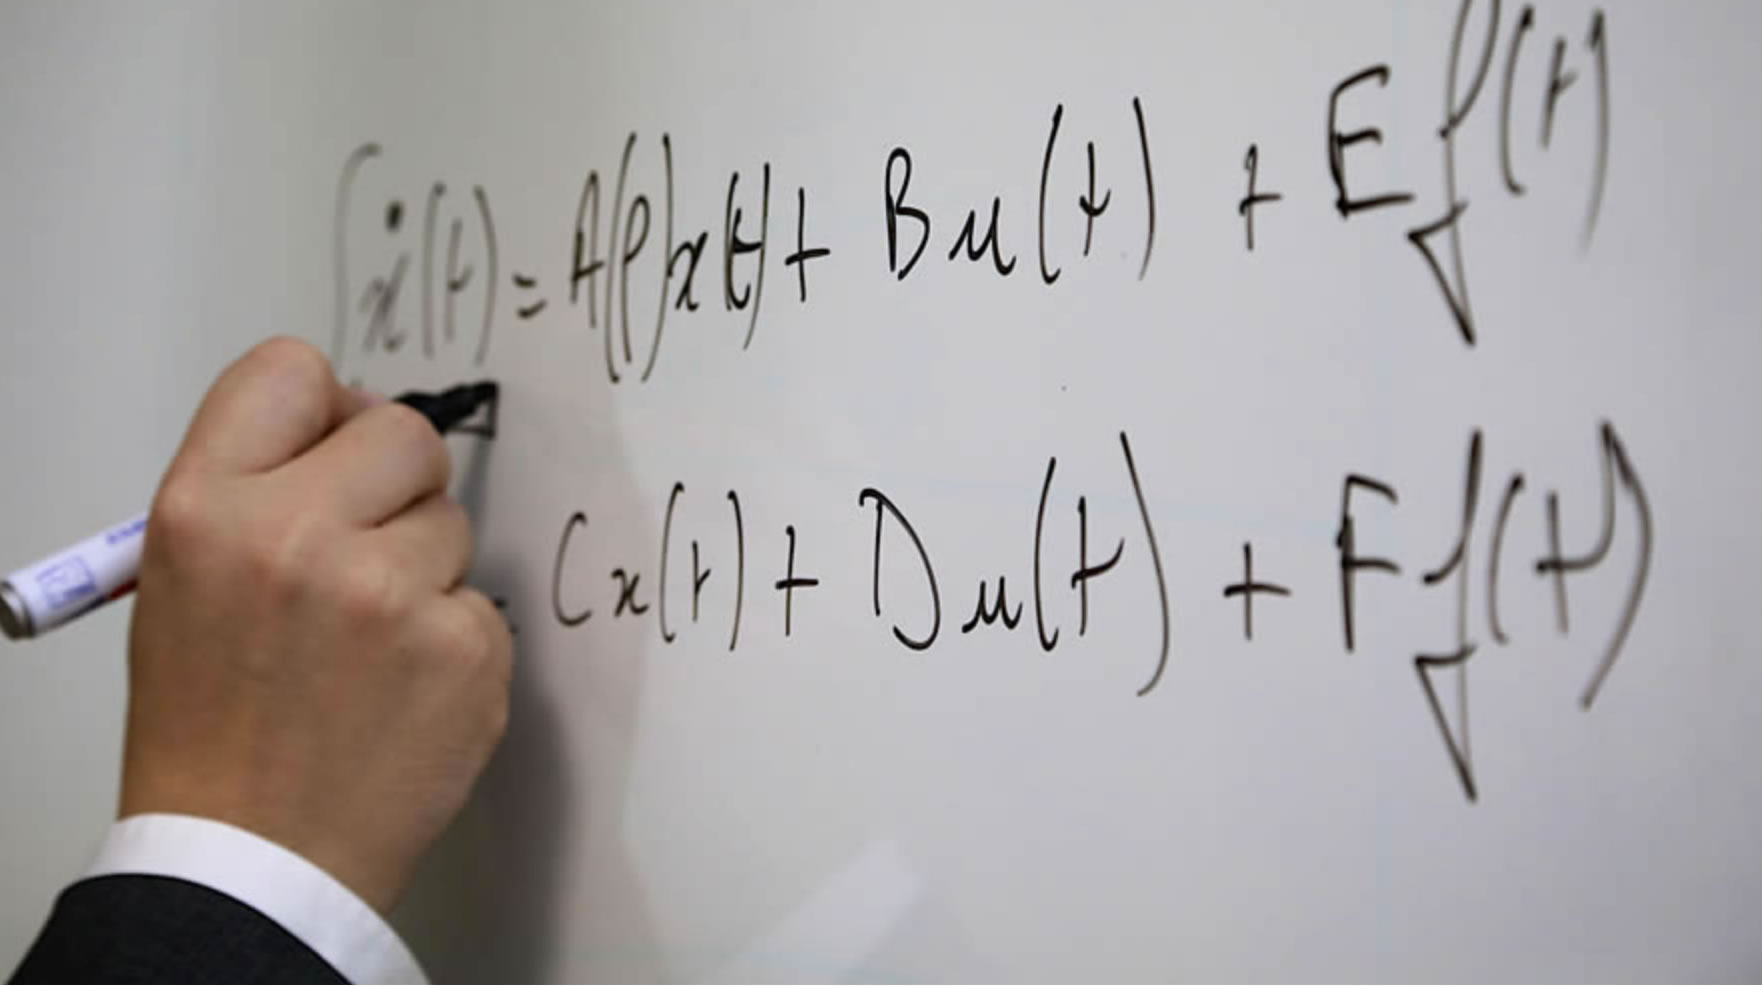 ẋ(t) = A(ρ)x(t) + Bu(t) + Ef(t)
= Cx(t) + Du(t) + Ff(t)